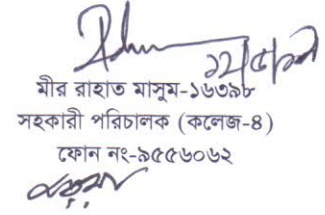 মীর রাহাত মাসুম-১৬৩৯৮
সহকারী পরিচালক (কলেজ-৪)
ফোন নং-৯৫৫৬০৬২